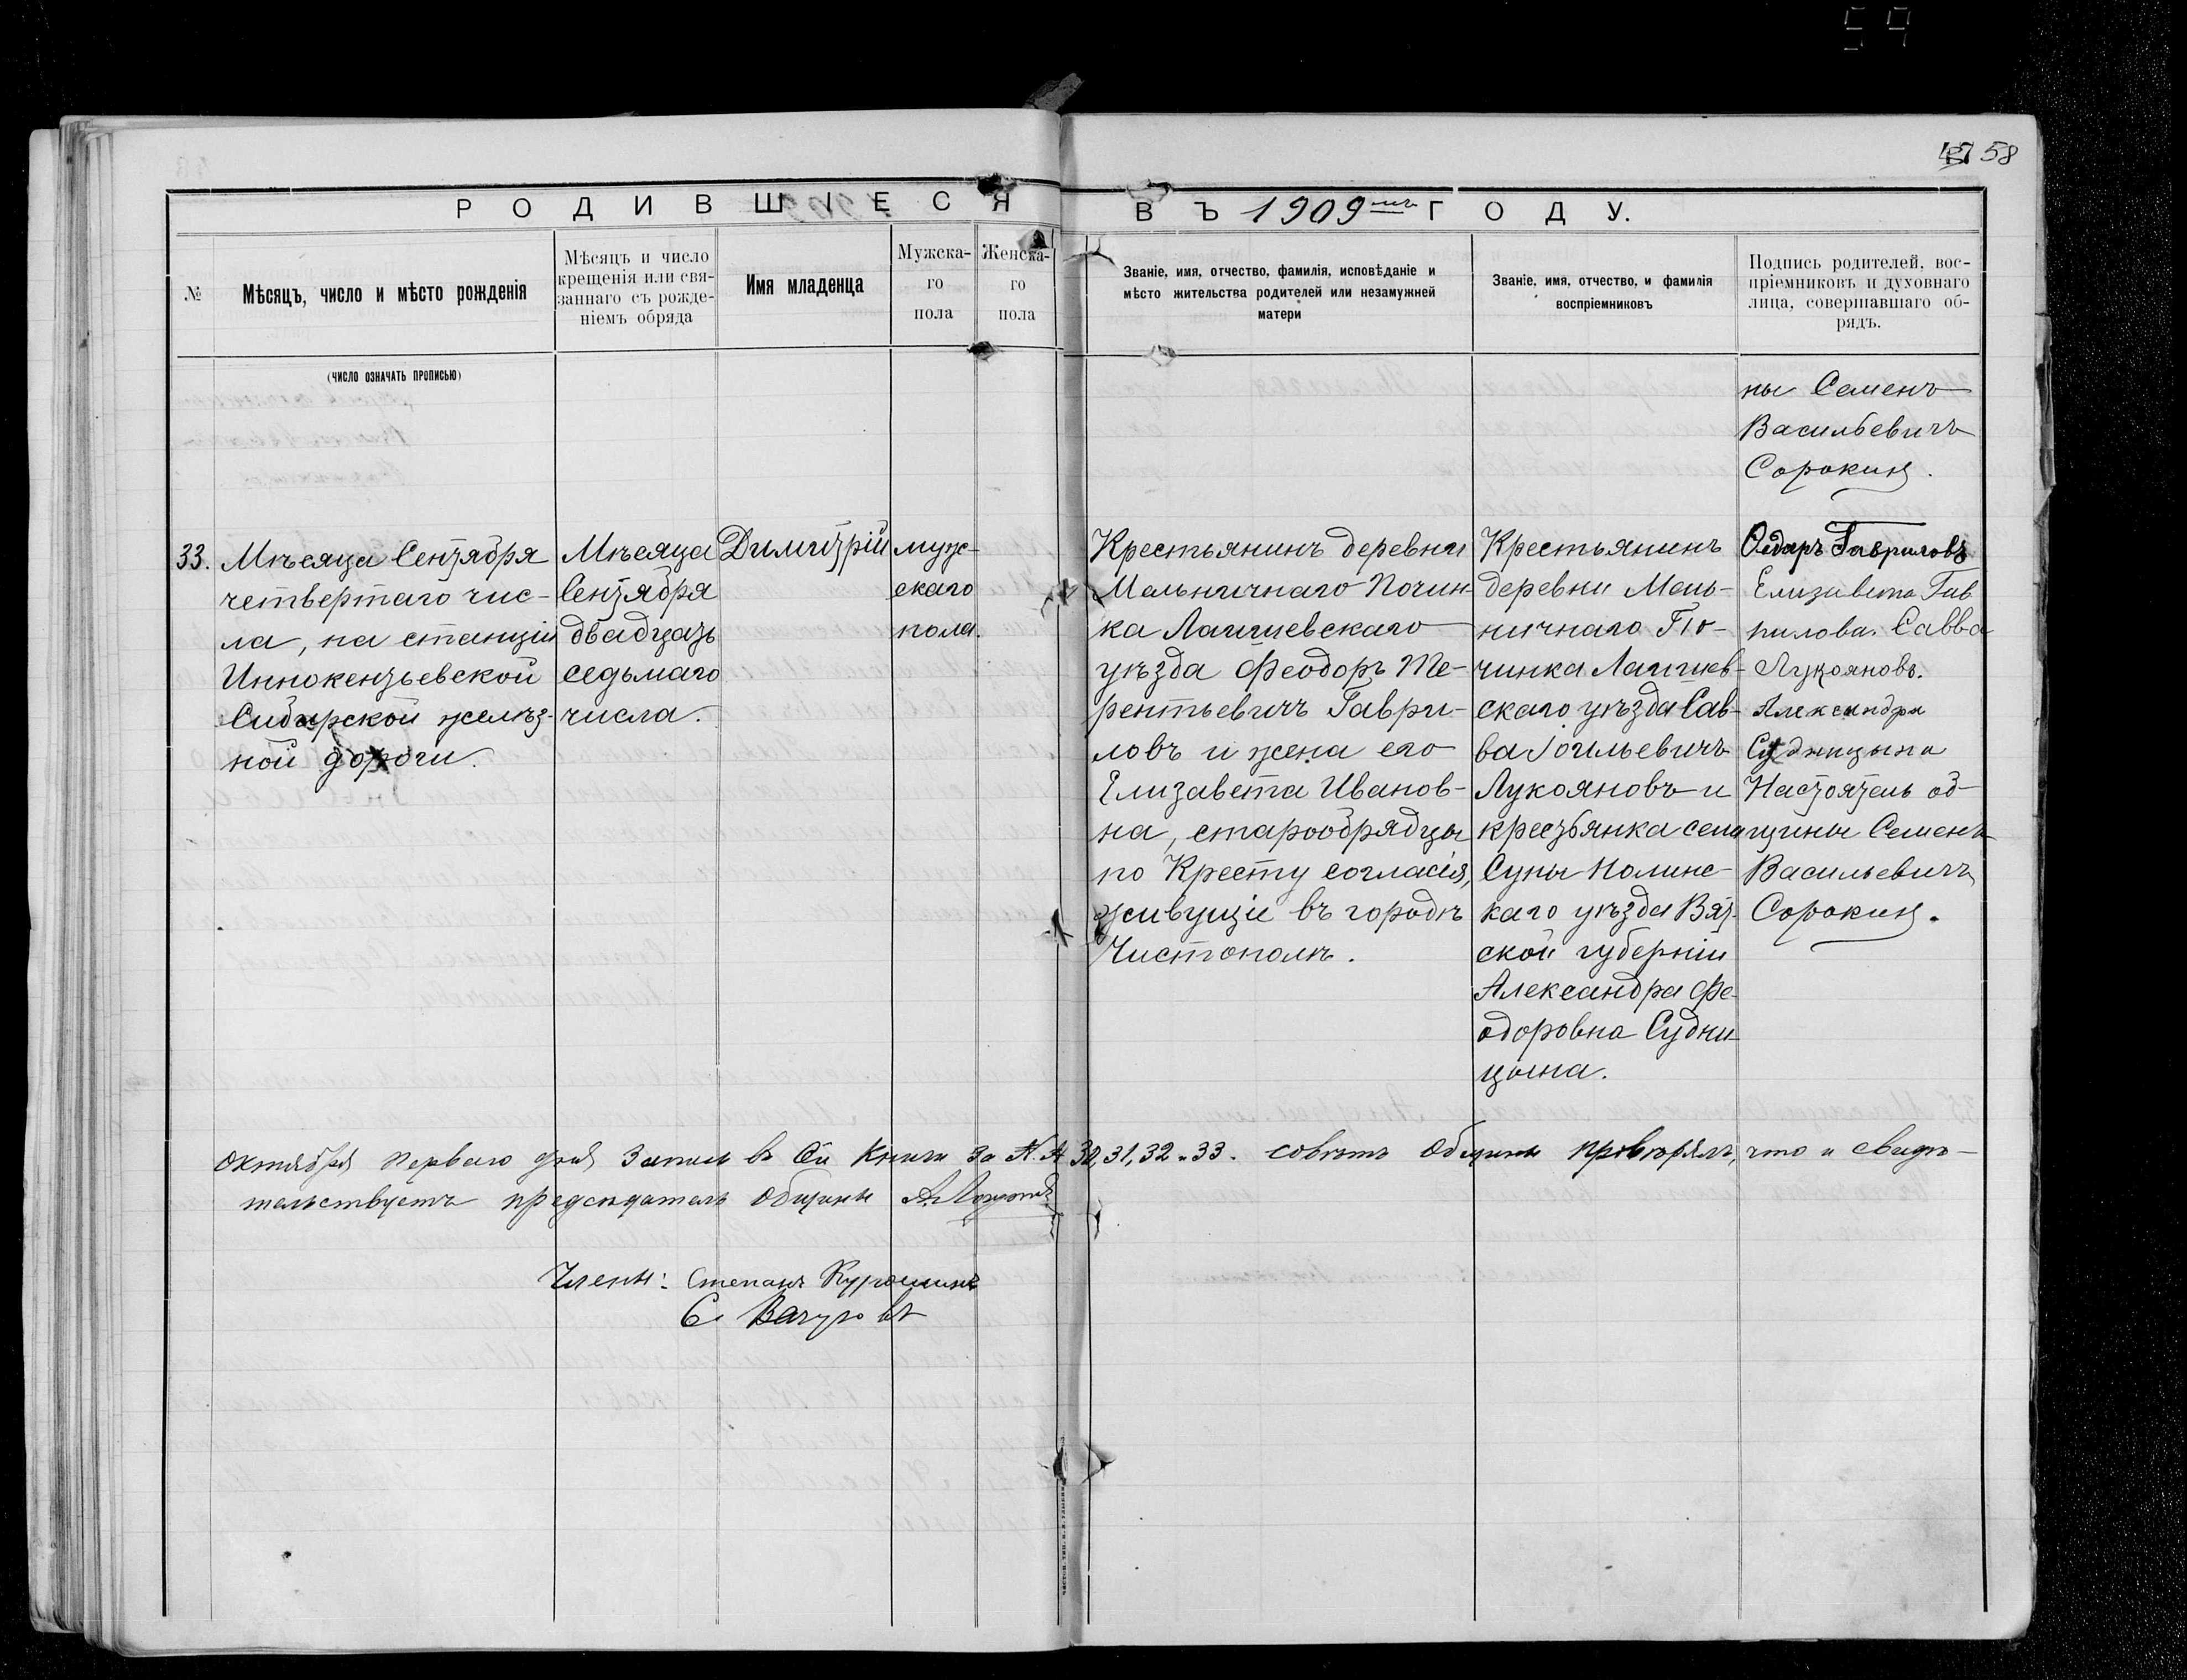 59
58
РОДИВШІЕСЯ ВЪ 1909мъ ГОДУ.
№
Мѣсяцъ, число и мѣсто рожденія
Мѣсяцъ и число
крещенія или свя-
заннаго съ рожде-
ніемъ обряда
Имя младенца
Мужска-
го
пола
Женска-
го
пола
Званіе, имя, отчество, фамилія, исповѣданіе и
мѣсто жительства родителей или незамужней
матери
Званіе, имя, отчество, и фамилія
воспріемниковъ
Подпись родителей, вос-
пріемниковъ и духовнаго
лица, совершавшаго об-
рядъ.
(число означать прописью)
ны Семенъ
Васильевичъ
Сорокинъ.
33.
Мѣсяца Сентября
четвертаго чис-
ла, на станціи
Иннокентьевской
Сибирской желѣз-
ной дороги.
Мѣсяца
Сентября
двадцать
седьмаго
числа.
Димитрій
муж-
скаго
пола.
Крестьянинъ деревни
Мельничнаго Почин-
ка Лаишевскаго
уѣзда Феодоръ Те-
рентьевичъ Гаври-
ловъ и жена его
Елизавета Иванов-
на, старообрядцы
по Кресту согласія,
живущіе въ городѣ
Чистополѣ.
Крестьянинъ
деревни Мель-
ничнаго По-
чинка Лаишев-
скаго уѣзда Сав-
ва
Лукояновъ и
крестьянка села
Суны Нолинс-
каго уѣзда Вят-
ской губерніи
Александра Фе-
одоровна Судни-
цына.
Гавриловъ
Елизавета Гав
рилова. Савва
Лукояновъ.
Александра
Судницына
Настоятель об-
щины Семенъ
Васильевичъ
Сорокинъ.
Октября перваго дня Запись въ Сей Книги за 31, 32 и 33. совѣтъ Общины провѣрялъ, что и свидѣ-
тельствуетъ предсѣдатель Общины
Члены: Степанъ
С.